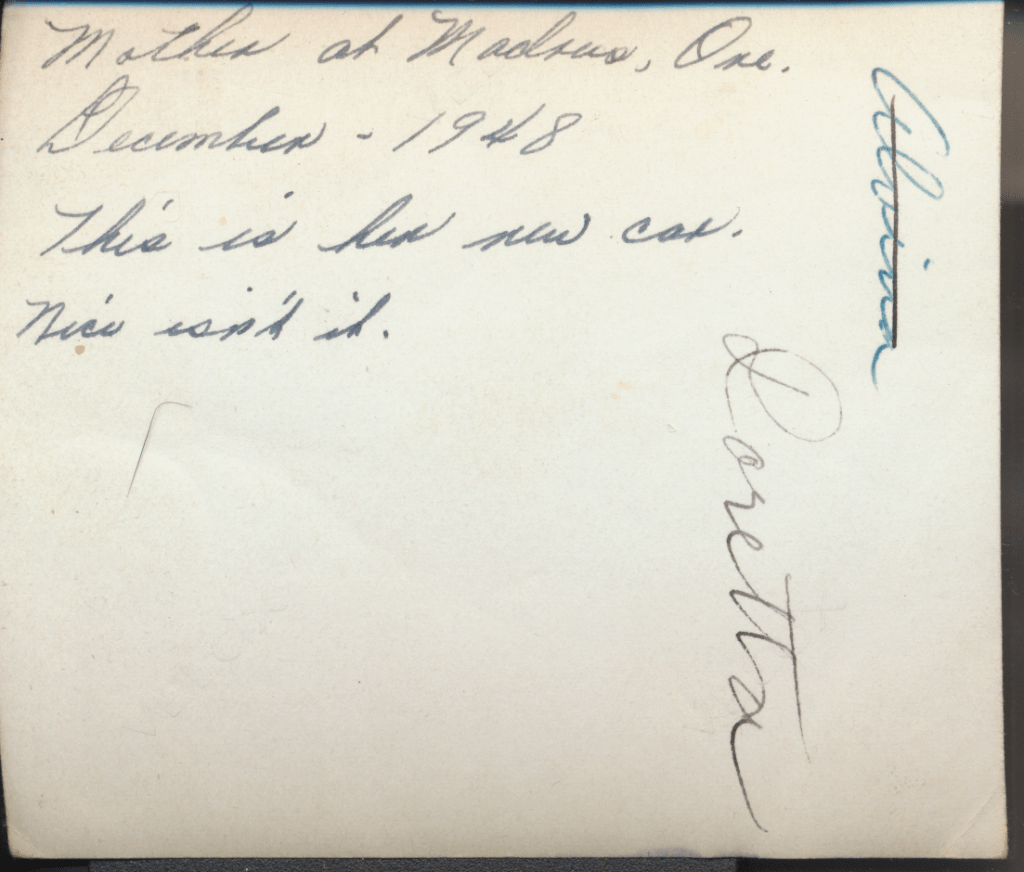 Mother at Madras, Ore.
December - 1948
This is her new car.
Nice isn't it.
Alvina
Doretta